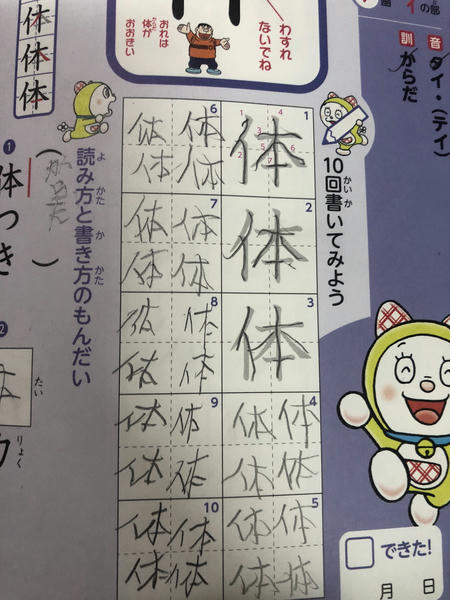 の部
音 タイ・(テイ)
訓 からだ
わすれ
ないでね
おれは
体が
おおきい
10回書いてみよう
1 体
2 体
3 体
4 体 体 体 体
5 体 体 体 体
6 体 体 体 体
7 体 体 体 体
8 体 体 体 体
9 体 体 体 体
10 体 体 体 体
できた!
月 日
読み方と書き方のもんだい
休
体
体
1
体つき
2
たい
りょく